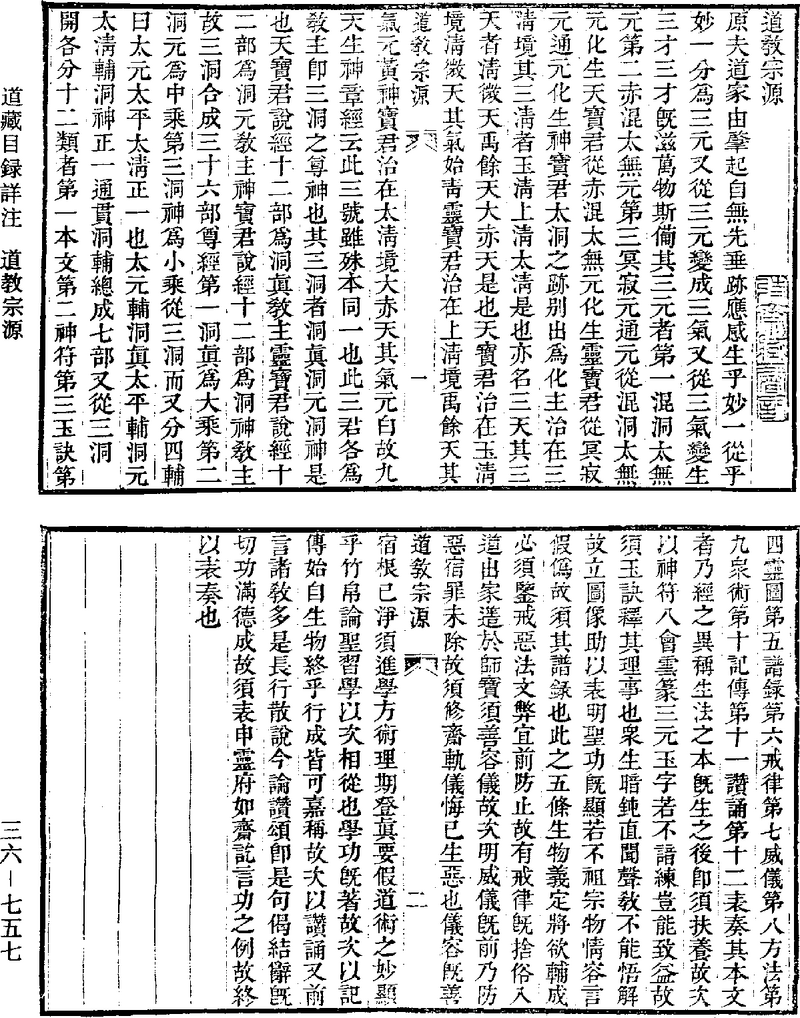 道教宗源
原夫道家由肇起自無先垂跡應感生乎妙一從乎
妙一分爲三元又從三元變成三氣又從三氣變生
三才三才旣滋萬物斯備其三元者第一混洞太無
元第二赤混太無元第三冥寂元通元從混洞太無
元化生天寶君從赤混太無元化生靈寶君從冥寂
元通元化生神寶君太洞之跡別出爲化主治在三
淸境其三淸者玉淸上淸太淸是也亦名三天其三
天者淸微天禹餘天大赤天是也天寶君治在玉淸
境淸微天其氣始靑靈寶君治在上淸境禹餘天其
道教宗源
一
氣元黃神寶君治在太淸境大赤天其氣元白故九
天生神章經云此三號雖殊本同一也此三君各爲
敎主卽三洞之尊神也其三洞者洞眞洞元洞神是
也天寶君說經十二部爲洞眞敎主靈寶君說經十
二部爲洞元敎主神寶君說經十二部爲洞神敎主
故三洞合成三十六部尊經第一洞眞爲大乘第二
洞元爲中乘第三洞神爲小乘從三洞而又分四輔
曰太元太平太淸正一也太元輔洞眞太平輔洞元
太淸輔洞神正一通貫洞輔總成七部又從三洞
開各分十二類者第一本文第二神符第三玉訣第
四靈圖第五譜錄第六戒律第七威儀第八方法第
九衆術第十記傳第十一讚誦第十二表奏其本文
者乃經之異稱生法之本旣生之後卽須扶養故次
以神符八會雲篆三元玉字若不諳練豈能致益故
須玉訣釋其理事也衆生暗鈍直聞聲敎不能悟解
故立圖像助以表明聖功旣顯若不祖宗物情容言
假僞故須其譜錄也此之五條生物義定將欲輔成
必須鑒戒惡法文弊宜前防止故有戒律旣捨俗入
道出家遣於師寶須善容儀故次明威儀旣前乃防
惡宿罪未除故須修齋軌儀悔已生惡也儀容旣善
道教宗源
二
宿根已淨須進學方術理期登眞要假道術之妙顯
乎竹帛論聖習學以次相從也學功旣著故次以記
傳始自生物終乎行成皆可嘉稱故次以讚誦又前
言諸敎多是長行散說今論讚頌卽是句偈結辭旣
切功滿德成故須表申靈府如齋訖言功之例故終
以表奏也
道藏目録詳注　道教宗源
三六－七五七